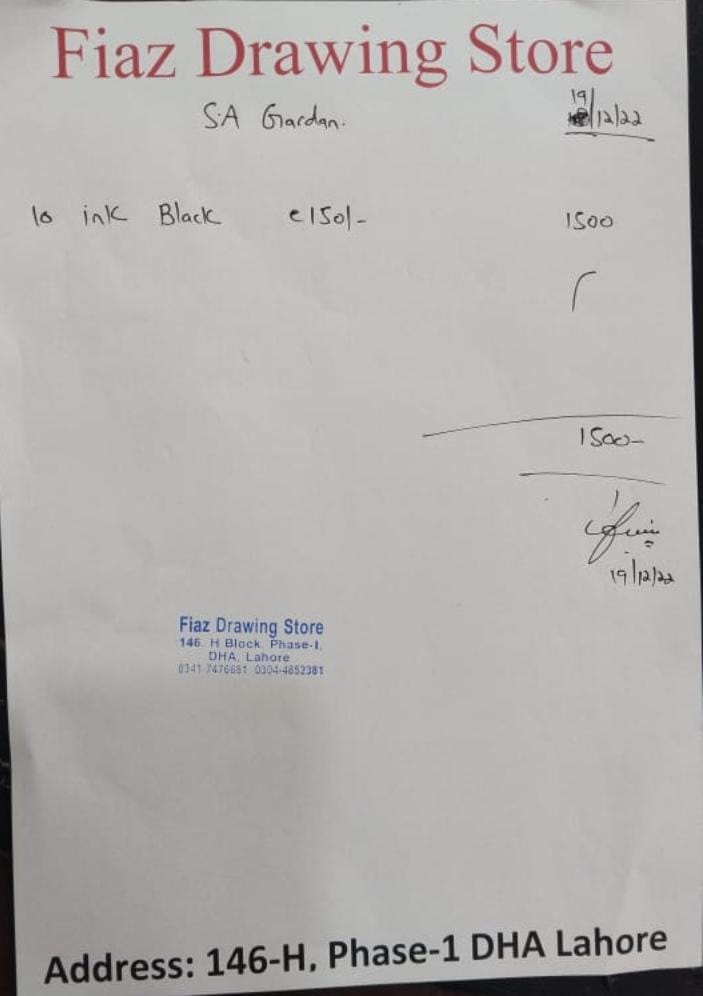 Fiaz Drawing Store
S.A Gardan.
19/12/22
10 ink Black @150/- 1500
1500-
19/12/22
Fiaz Drawing Store
146 H Block, Phase-I,
DHA, Lahore
0341 7476681 0304-4852381
Address: 146-H, Phase-1 DHA Lahore